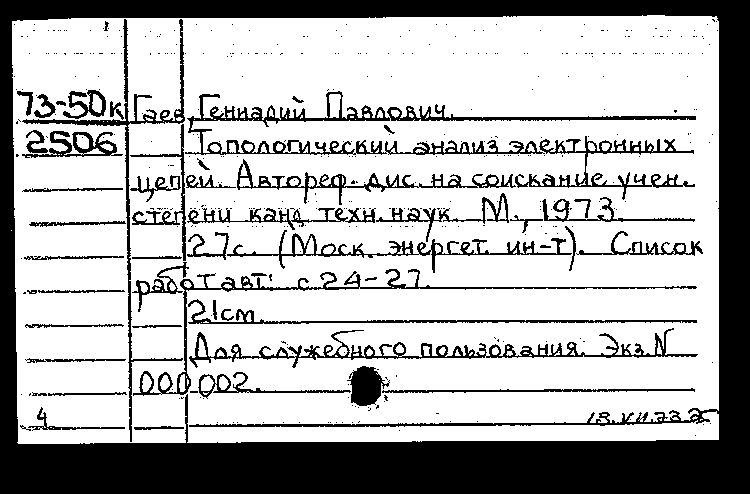 73-50к Гаев, Геннадий Павлович.
2506 Топологический анализ электронных
цепей. Автореф. дис. на соискание учен.
степени канд. техн. наук. М., 1973.
27с. (Моск. энергет. ин-т). Список
работ авт: с 24-27.
21см.
Для служебного пользования. Экз. N
000002.
4